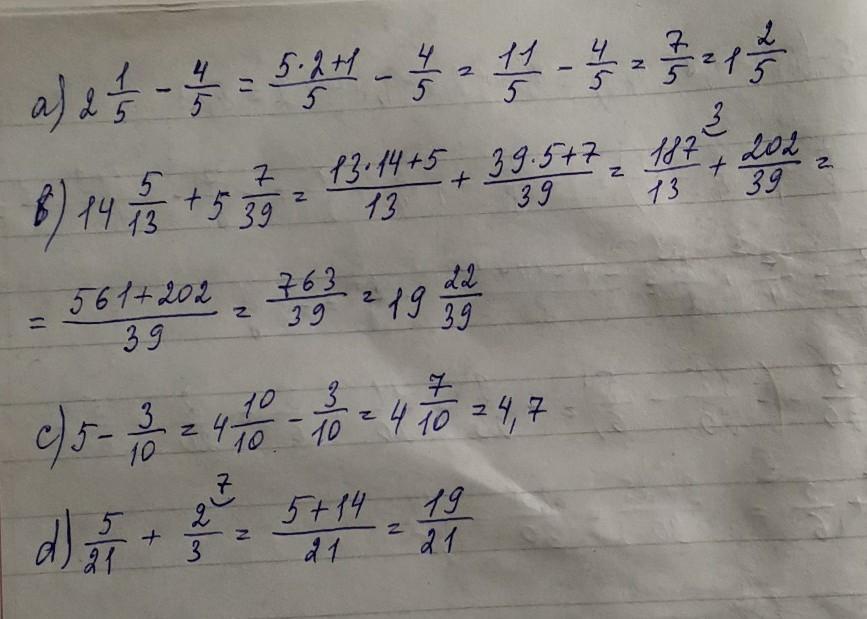 a) 2 1/5 - 4/5 = (5·2+1)/5 - 4/5 = 11/5 - 4/5 = 7/5 = 1 2/5
b) 14 5/13 + 5 7/39 = (13·14+5)/13 + (39·5+7)/39 = 187/13 ³⁾ + 202/39 =
= (561+202)/39 = 763/39 = 19 22/39
c) 5 - 3/10 = 4 10/10 - 3/10 = 4 7/10 = 4,7
d) 5/21 + 2/3 ⁷⁾ = (5+14)/21 = 19/21